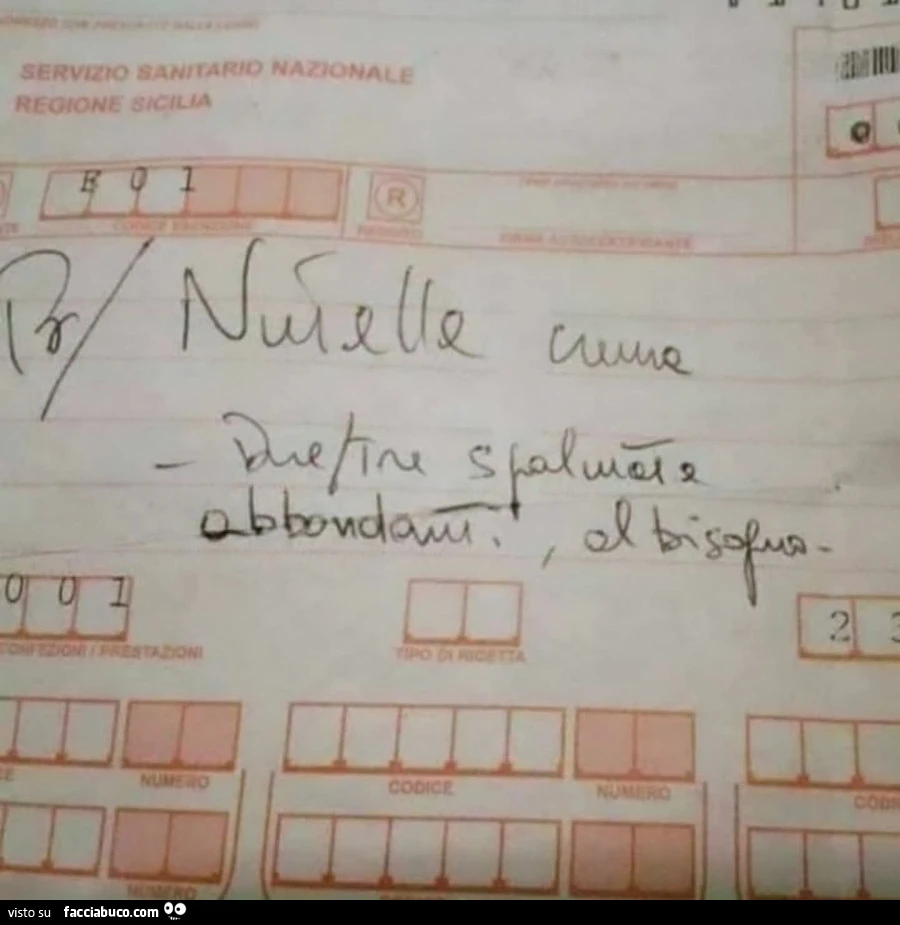 SERVIZIO SANITARIO NAZIONALE
REGIONE SICILIA
0
E 0 1
R
CODICE ESENZIONE
FIRMA AUTOCERTIFICANTE
Pr/ Nutella crema
- Due/tre spalmate
abbondanti, al bisogno-
0 0 1
2 3
CONFEZIONI / PRESTAZIONI
TIPO DI RICETTA
NUMERO
CODICE
NUMERO
NUMERO
visto su facciabuco.com